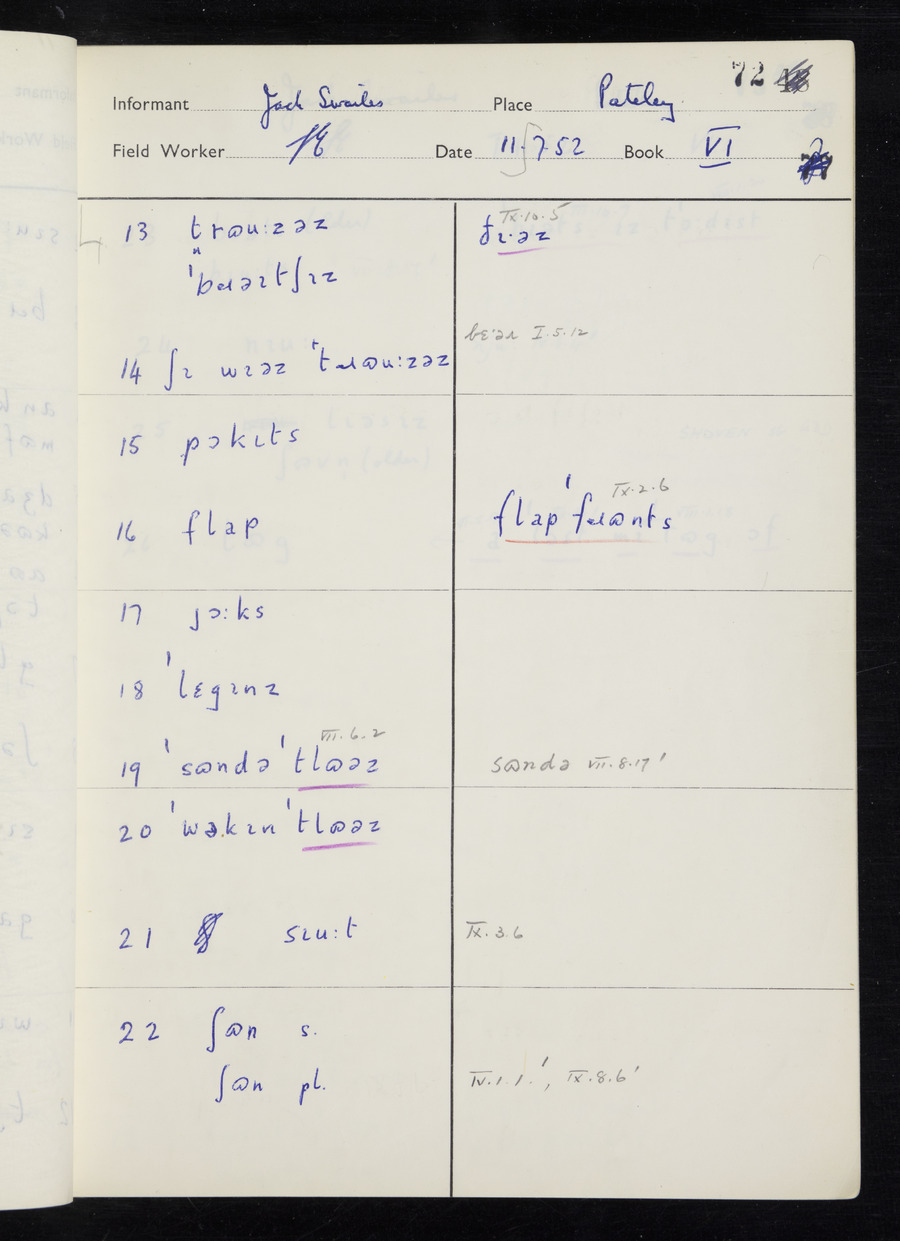 72
Informant Jack Swailes Place Pateley
Field Worker Date 11.7.52 Book VI
13 trɷu:zəz
IX.10.5
ˈbɹəɪtʃɪz
bɛ·əɹ I.5.12
14 ʃɪ wɪəz ˈtɹɷu:zəz
15 pɔkɩts
16 flap
flapˈfɹɷnts IX.2.6
17 jɔ:ks
18 ˈlɛgɪnz
19 ˈsɷndəˈtlɷəz VII.6.2
sɷndə VII.8.17'
20 ˈwəkɪnˈtlɷəz
21 sɪu:t
IX.3.6
22 ʃɷn s.
ʃɷn pl.
IV.1.1.', IX.8.6'